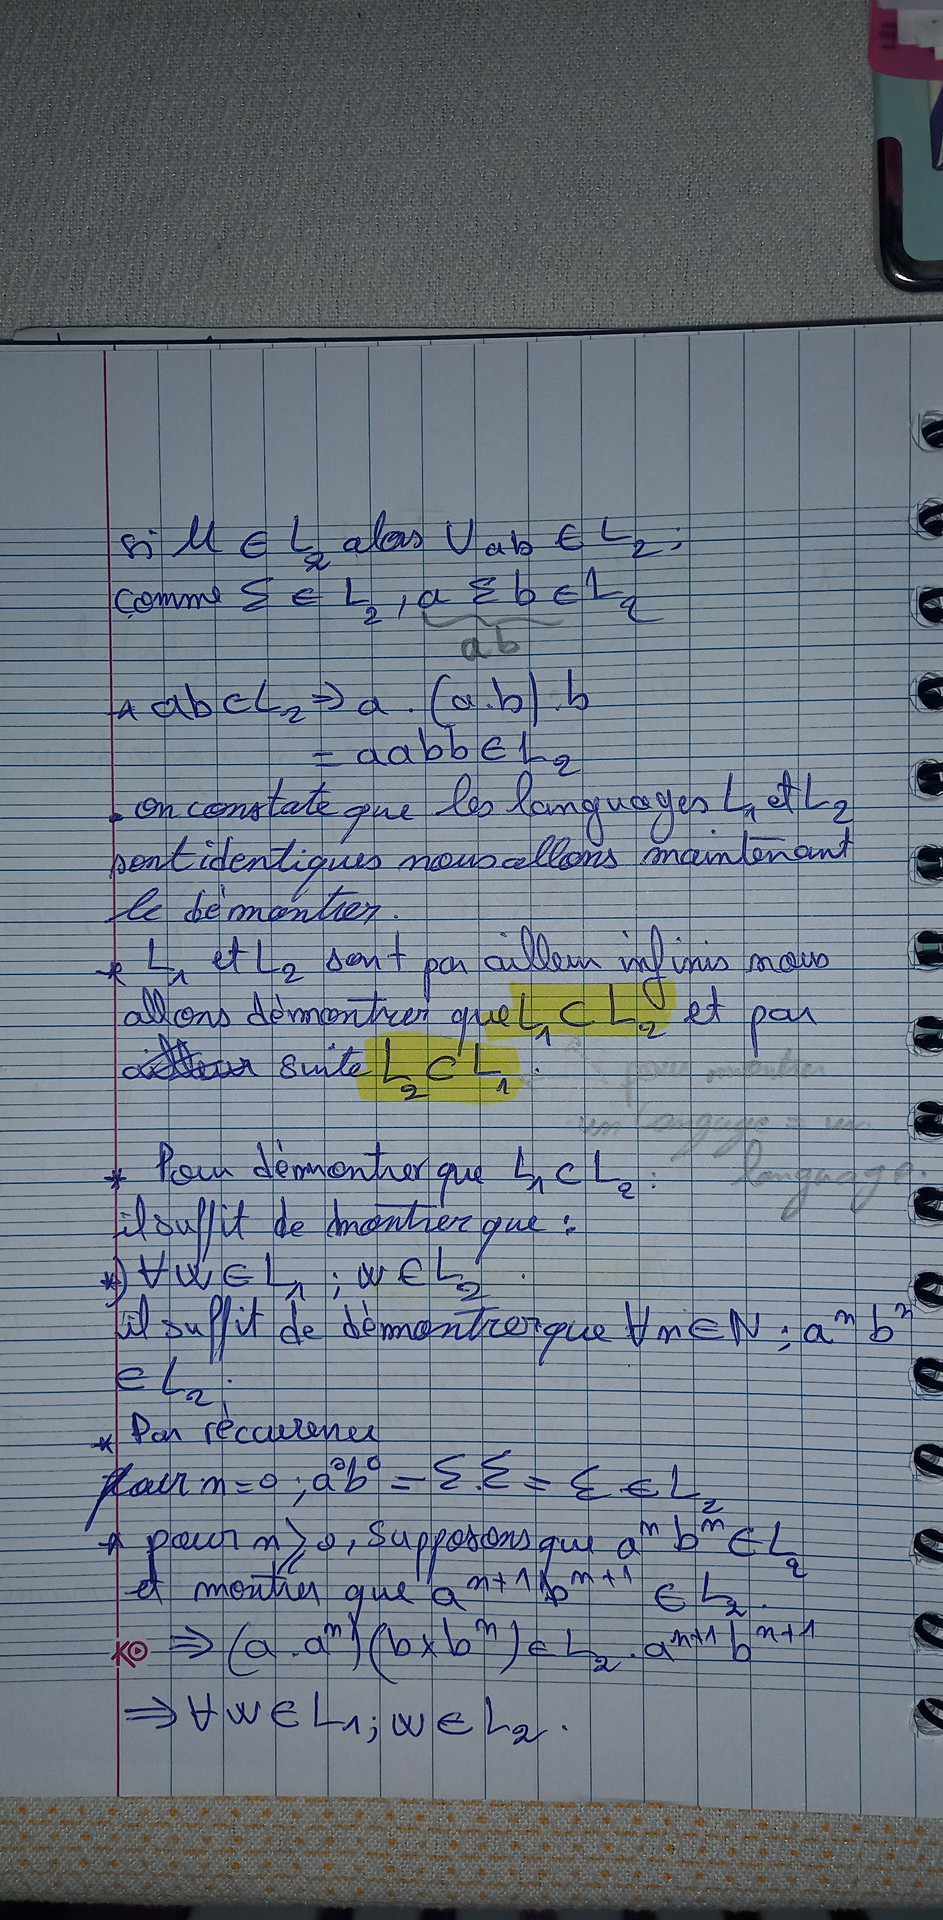 si U ∈ L₂ alors U ab ∈ L₂;
comme Σ ∈ L₂, a Σ b ∈ L₂
ab
* ab ∈ L₂ ⇒ a . (a.b) . b
= aabb ∈ L₂
. on constate que les languages L₁ et L₂
sont identiques nous allons maintenant
le démontrer.
* L₁ et L₂ sont par ailleur infinis nous
allons démontrer que L₁ ⊂ L₂ et par
suite L₂ ⊂ L₁.
pour montrer
un langage = un
language.
* Pour démontrer que L₁ ⊂ L₂ :
il suffit de montrer que :
*) ∀ w ∈ L₁ ; w ∈ L₂ .
il suffit de démontrer que ∀ n ∈ N ; aⁿ bⁿ
∈ L₂ ;
* Par réccurence
pour n = 0 ; a⁰b⁰ = Σ.Σ = Σ ∈ L₂
* pour n ⩾ 0, supposons que aⁿ bⁿ ∈ L₂
et montrer que aⁿ⁺¹ bⁿ⁺¹ ∈ L₂.
⇒ (a . aⁿ) (b × bⁿ) ∈ L₂ . aⁿ⁺¹ bⁿ⁺¹
⇒ ∀ w ∈ L₁ ; w ∈ L₂ .